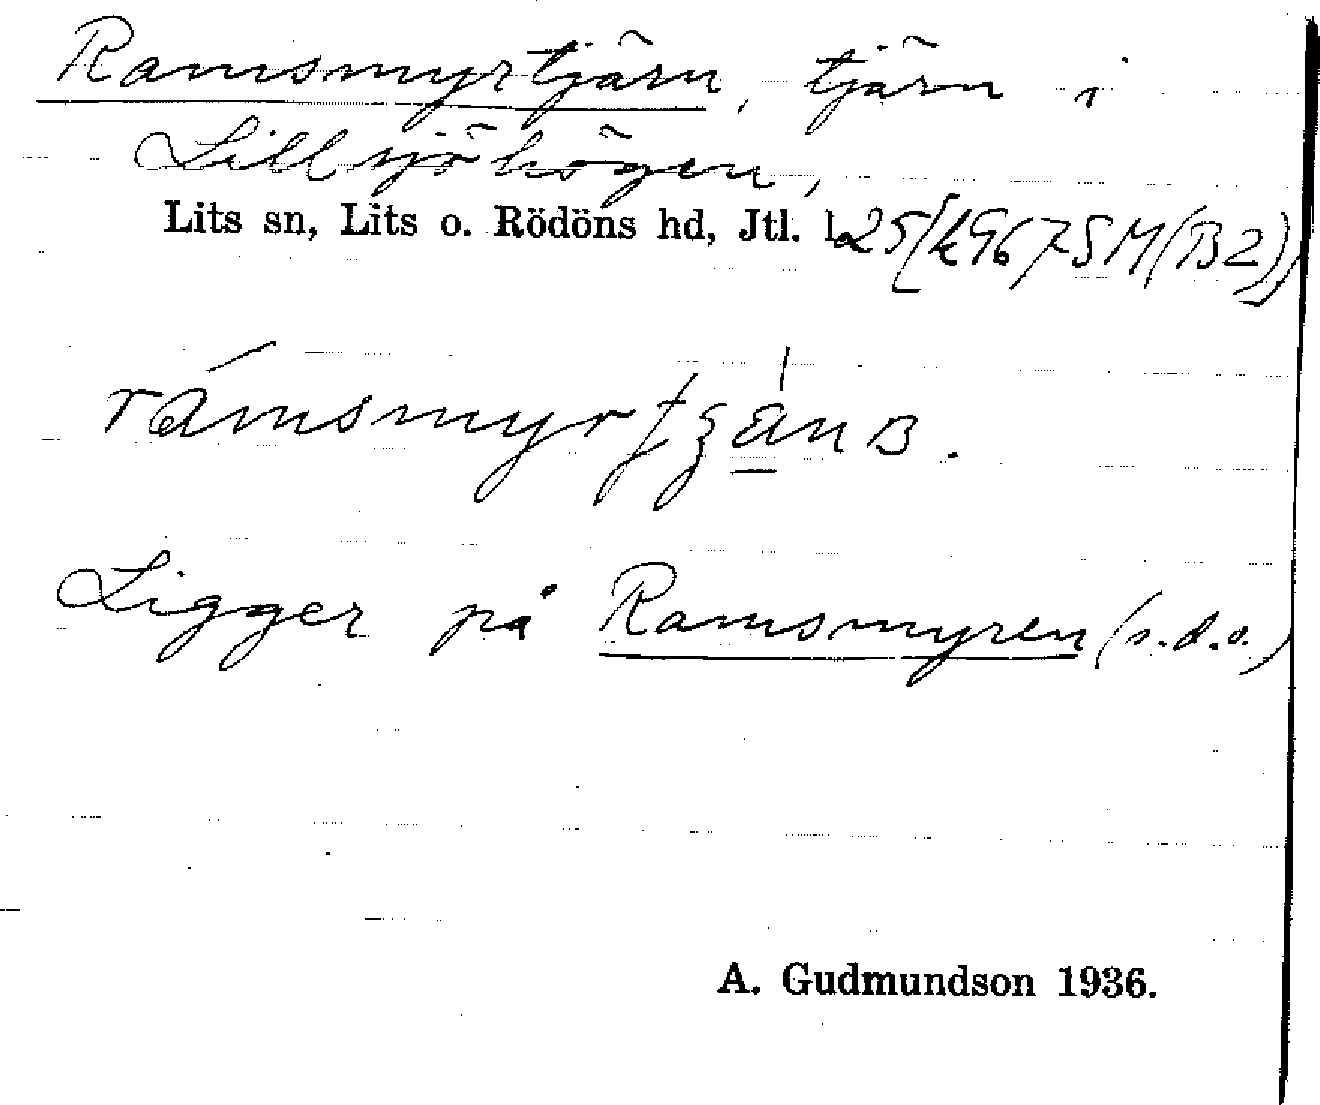 Ramsmyrtjärn, tjärn i
Lillsjöhögen,
Lits sn, Lits o. Rödöns hd, Jtl. l.
rámsmyr
Ligger på Ramsmyren (s.d.o.)
A. Gudmundson 1936.